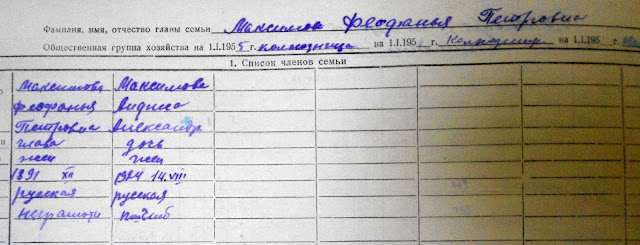 Фамилия, имя, отчество главы семьи Максимова Феофанья Петровна
Общественная группа хозяйства на 1.I.1955 г. колхозница на 1.I.195 г. на 1.I.195 г.
1. Список членов семьи
Максимова Максимова
Феофанья
Петровна Александр
глава дочь
жен жен
1891 XII 1924 14.VIII
русская русская
неграмотн